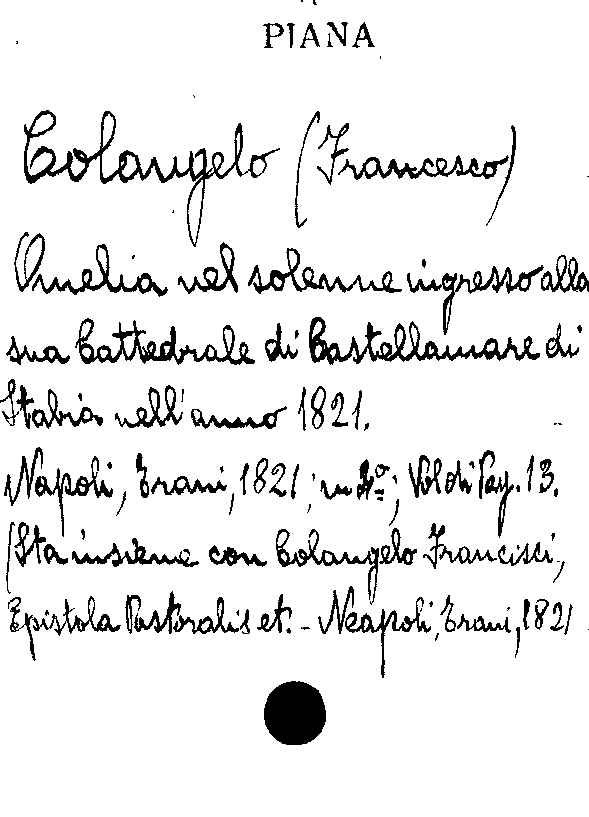 PIANA
Colangelo (Francesco)
Omelia nel solenne ingresso alla
sua Cattedrale di Castellamare di
Stabia nell'anno 1821.
Napoli, Trani, 1821; in 4º; Vol di Pag. 13.
(Sta insieme con Colangelo Francisci,
Epistola Pastoralis et. - Neapoli, Trani, 1821